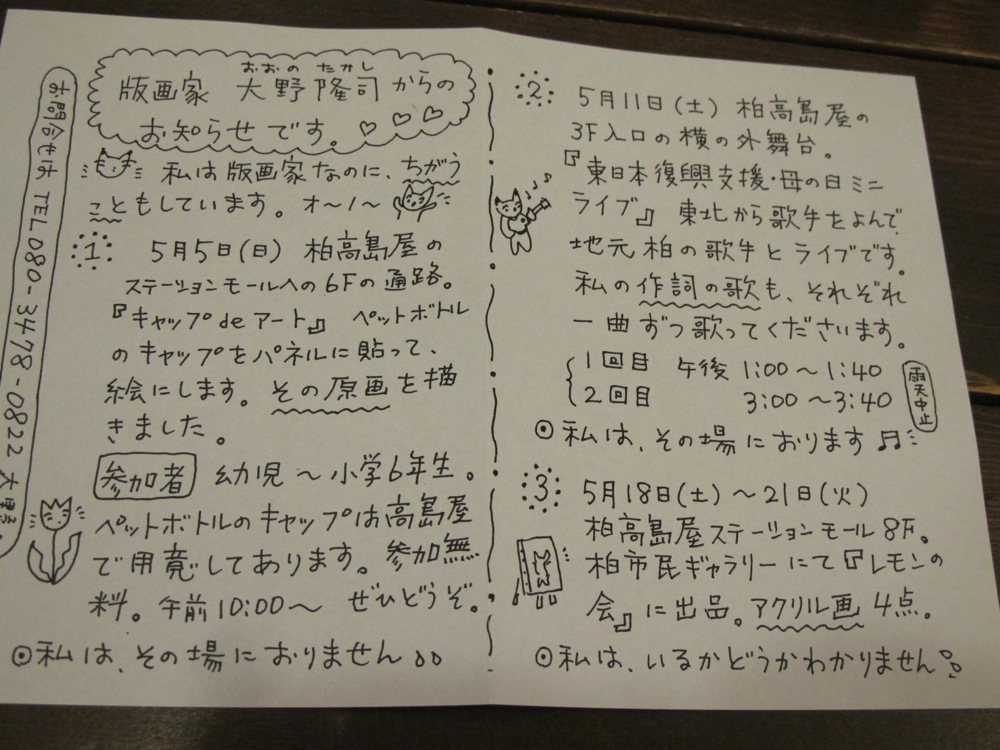 お問合せは TEL 080-3478-0822 大野
おおの たかし
版画家 大野隆司からの
お知らせです。♡♡♡
私は版画家なのに、ちがう
こともしています。オ〜ノ〜
1 5月5日(日) 柏高島屋の
ステーションモールへの6Fの通路。
『キャップdeアート』 ペットボトル
のキャップをパネルに貼って、
絵にします。その原画を描
きました。
参加者 幼児〜小学6年生。
ペットボトルのキャップは高島屋
で用意してあります。参加無
料。午前10:00〜 ぜひどうぞ。
◎私は、その場におりません
2 5月11日(土) 柏高島屋の
3F入口の横の外舞台。
『東日本復興支援・母の日ミニ
ライブ』 東北から歌手をよんで、
地元柏の歌手とライブです。
私の作詞の歌も、それぞれ
一曲ずつ歌ってくださいます。
1回目 午後 1:00〜1:40
2回目 3:00〜3:40
雨天中止
◎私は、その場におります♬
3 5月18日(土)〜21日(火)
柏高島屋ステーションモール8F。
柏市民ギャラリーにて『レモンの
会』に出品。アクリル画4点。
◎私は、いるかどうかわかりません